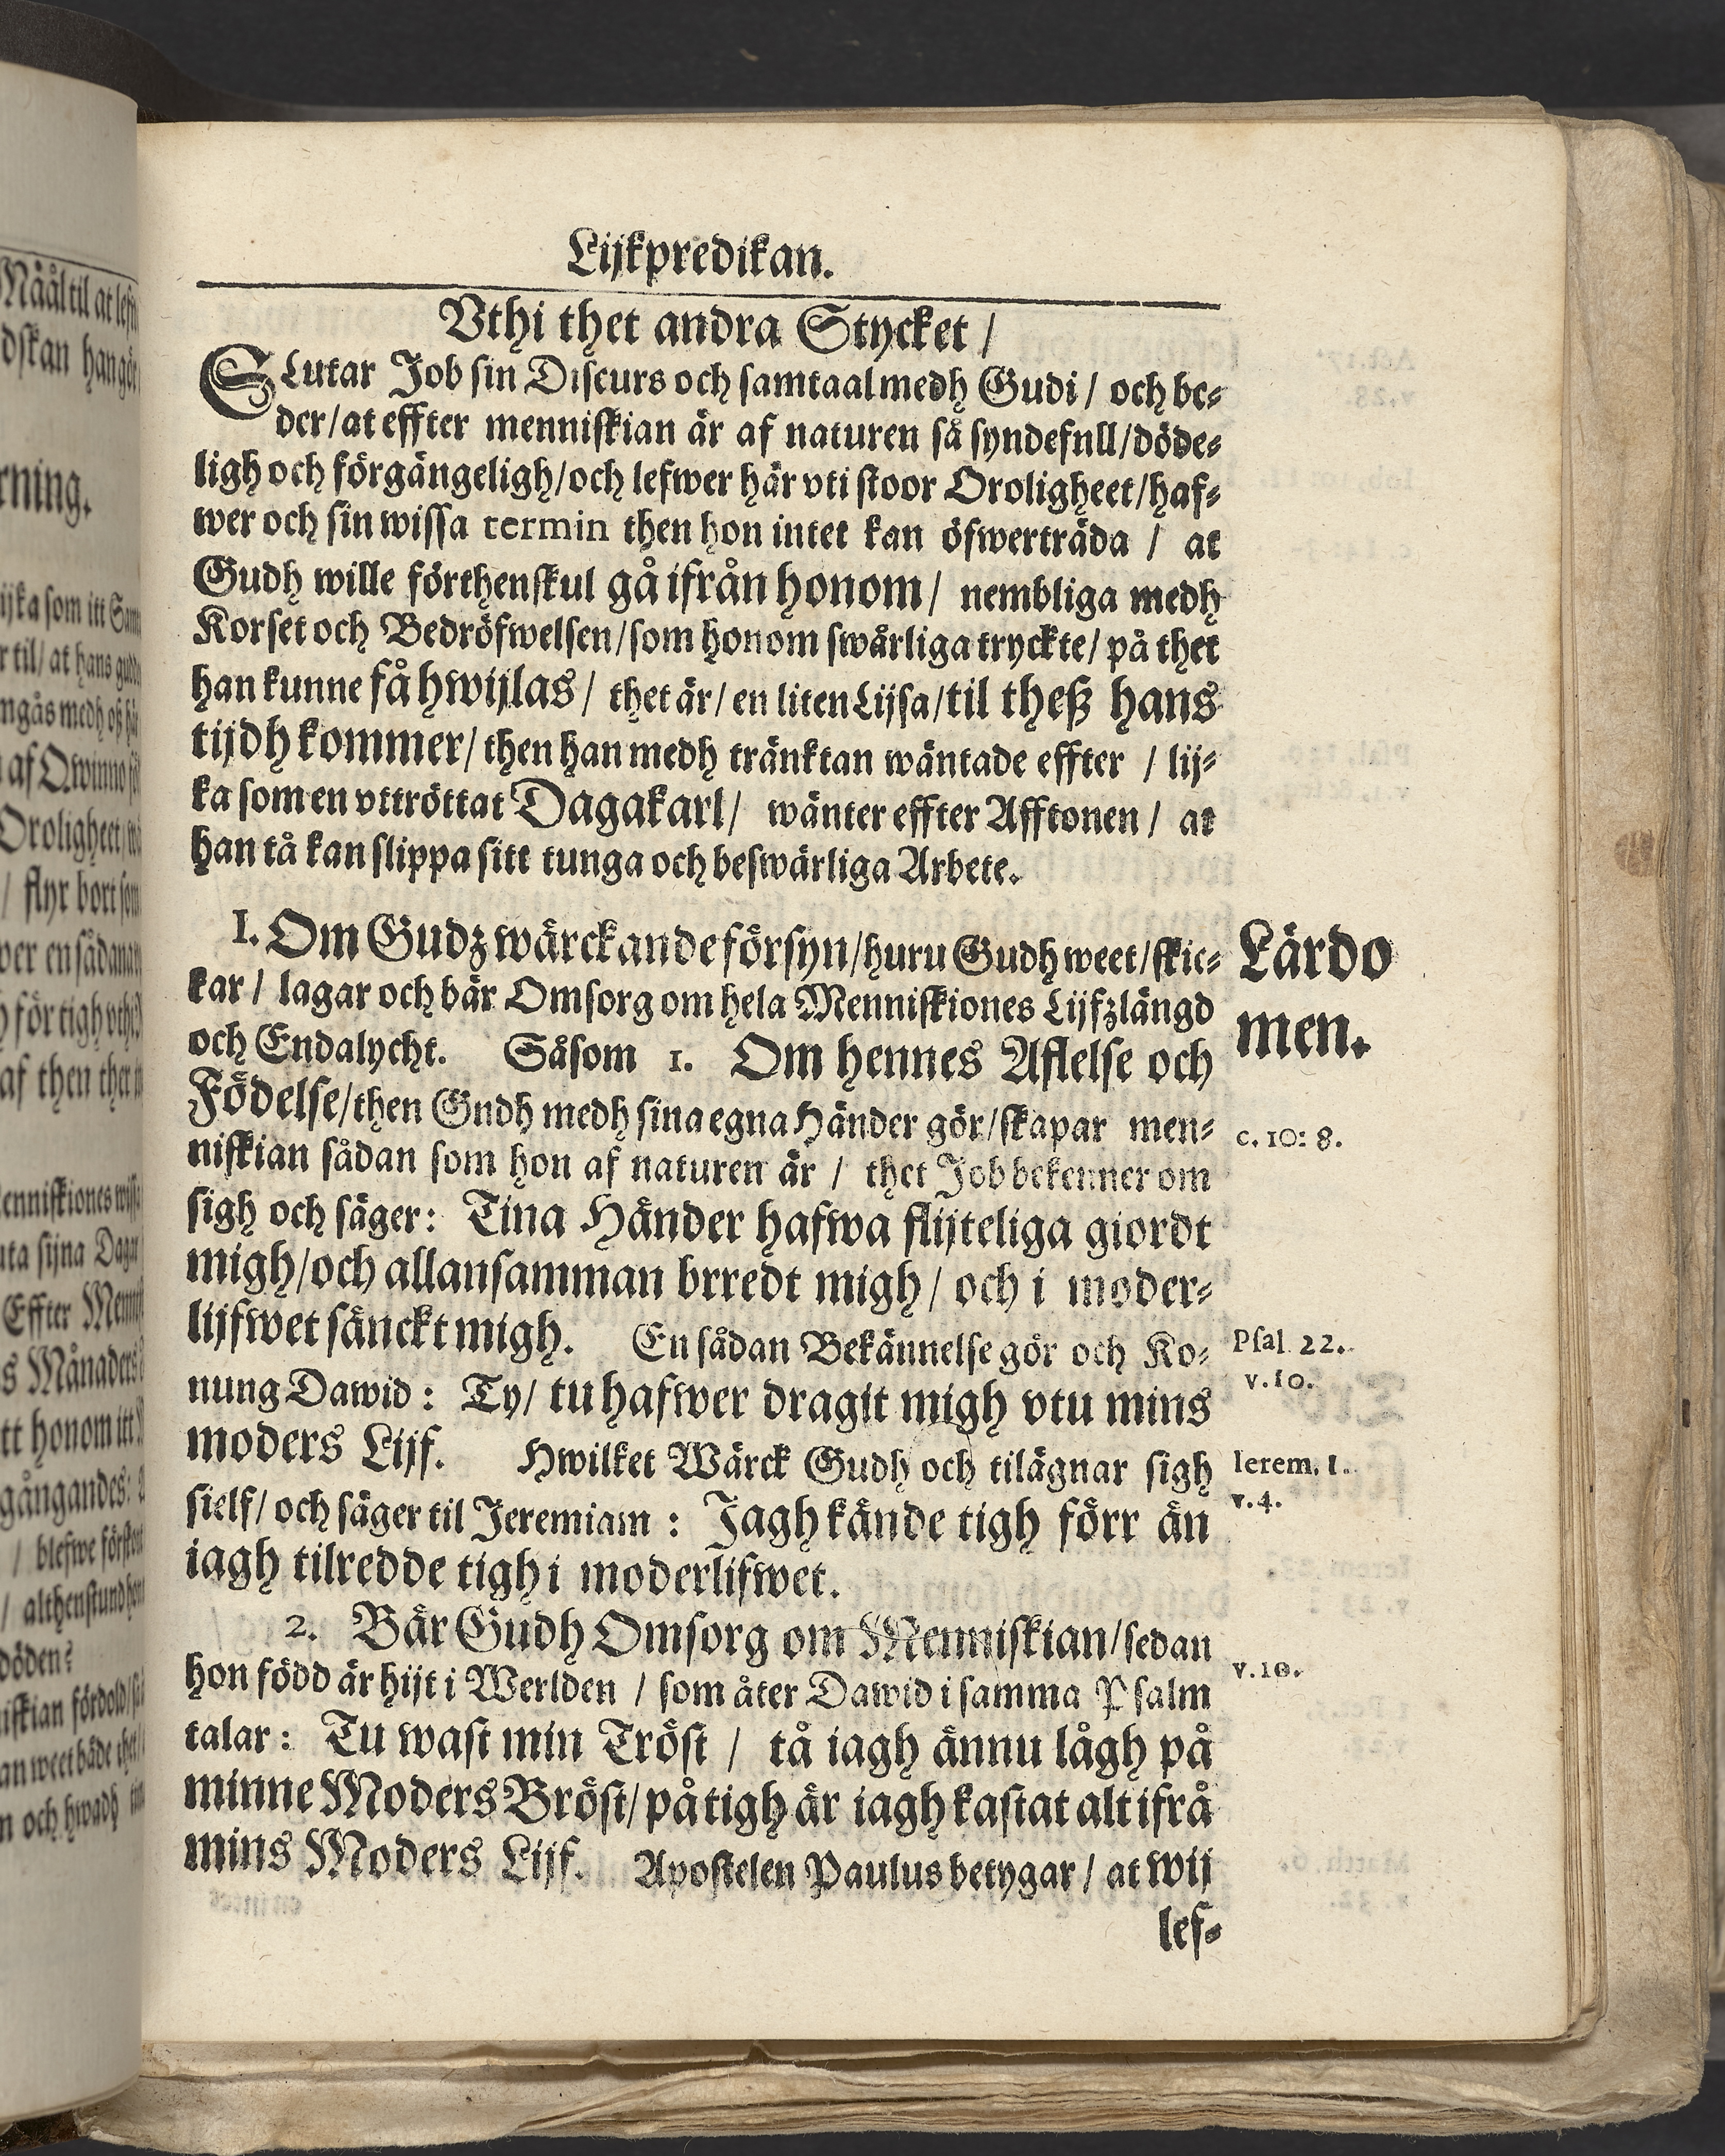 Lijkpredikan.
Vthi thet andra Stycket /
SLutar Job sin Discurs och samtaal medh Gudi / och be-
der/at effter menniskian är af naturen så syndefnll/döde-
ligh och förgängeligh/och lefwer här vti stoor Oroligheet/haf-
wer och sin wissa termin then hon intet kan öfwerträda / at
Gudh wille förthenskul gå ifrån honom/ nembliga medh
Korset och Bedröfwelsen/som honom swårliga tryckte/ på thet
han kunne få hwijlas/ thet är/ en liten Lijsa/til theß hans
tijdh kommer/ then han medh tränktan wäntade effter / lij-
ka som en vttröttat Dagakarl/ wänter effter Afftonen / at
han tå kan slippa sitt tunga och beswärliga Arbete.
I. Om Gudz wärckande försyn/huru Gudh weet/skic-
kar / lagar och bär Omsorg om hela Menniskiones Lijfzlängd
och Endalycht. Såsom 1. Om hennes Aflelse och
Födelse/then Gndh medh sina egna Händer gör/skapar men-
niskian sådan som hon af naturen är / thet Job bekenner om
sigh och säger: Tina Händer hafwa flijteliga giordt
migh/och allansamman brredt migh/ och i moder-
lijfwet sänckt migh. En sådan Bekännelse gör och Ko-
nung Dawid: Ty/ tu hafwer dragit migh vtu mins
moders Lijf. Hwilket Wärck Gudh och tilägnar sigh
sielf/ och säger til Jeremiam : Jagh kände tigh förr än
iagh tilredde tigh i moderlifwet.
2. Bär Gudh Omsorg om Menniskian/sedan
hon född är hijt i Werlden / som åter Dawid i samma Psalm
talar: Tu wast min Tröst / tå iagh ännu lågh på
minne Moders Bröst/ på tigh är iagh kastat alt ifrå
mins Moders Lijf. Apostelen Paulus betygar / at wij
lef-
Lärdo
men.
c. 10: 8.
Psal. 22.
v. 10.
Ierem. 1.
v. 4.
v. 10.